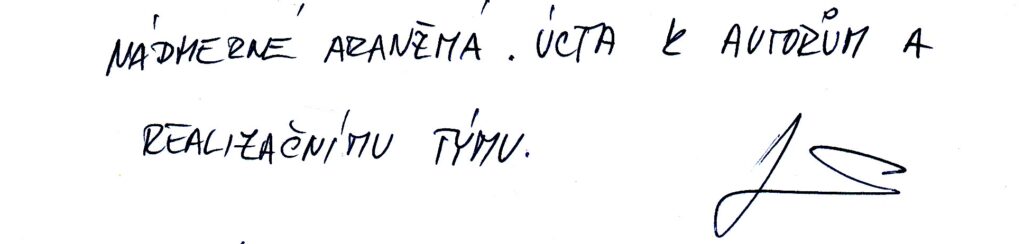 NÁDHERNÉ ARANŽMÁ. ÚCTA K AUTORŮM A
REALIZAČNÍMU TÝMU.